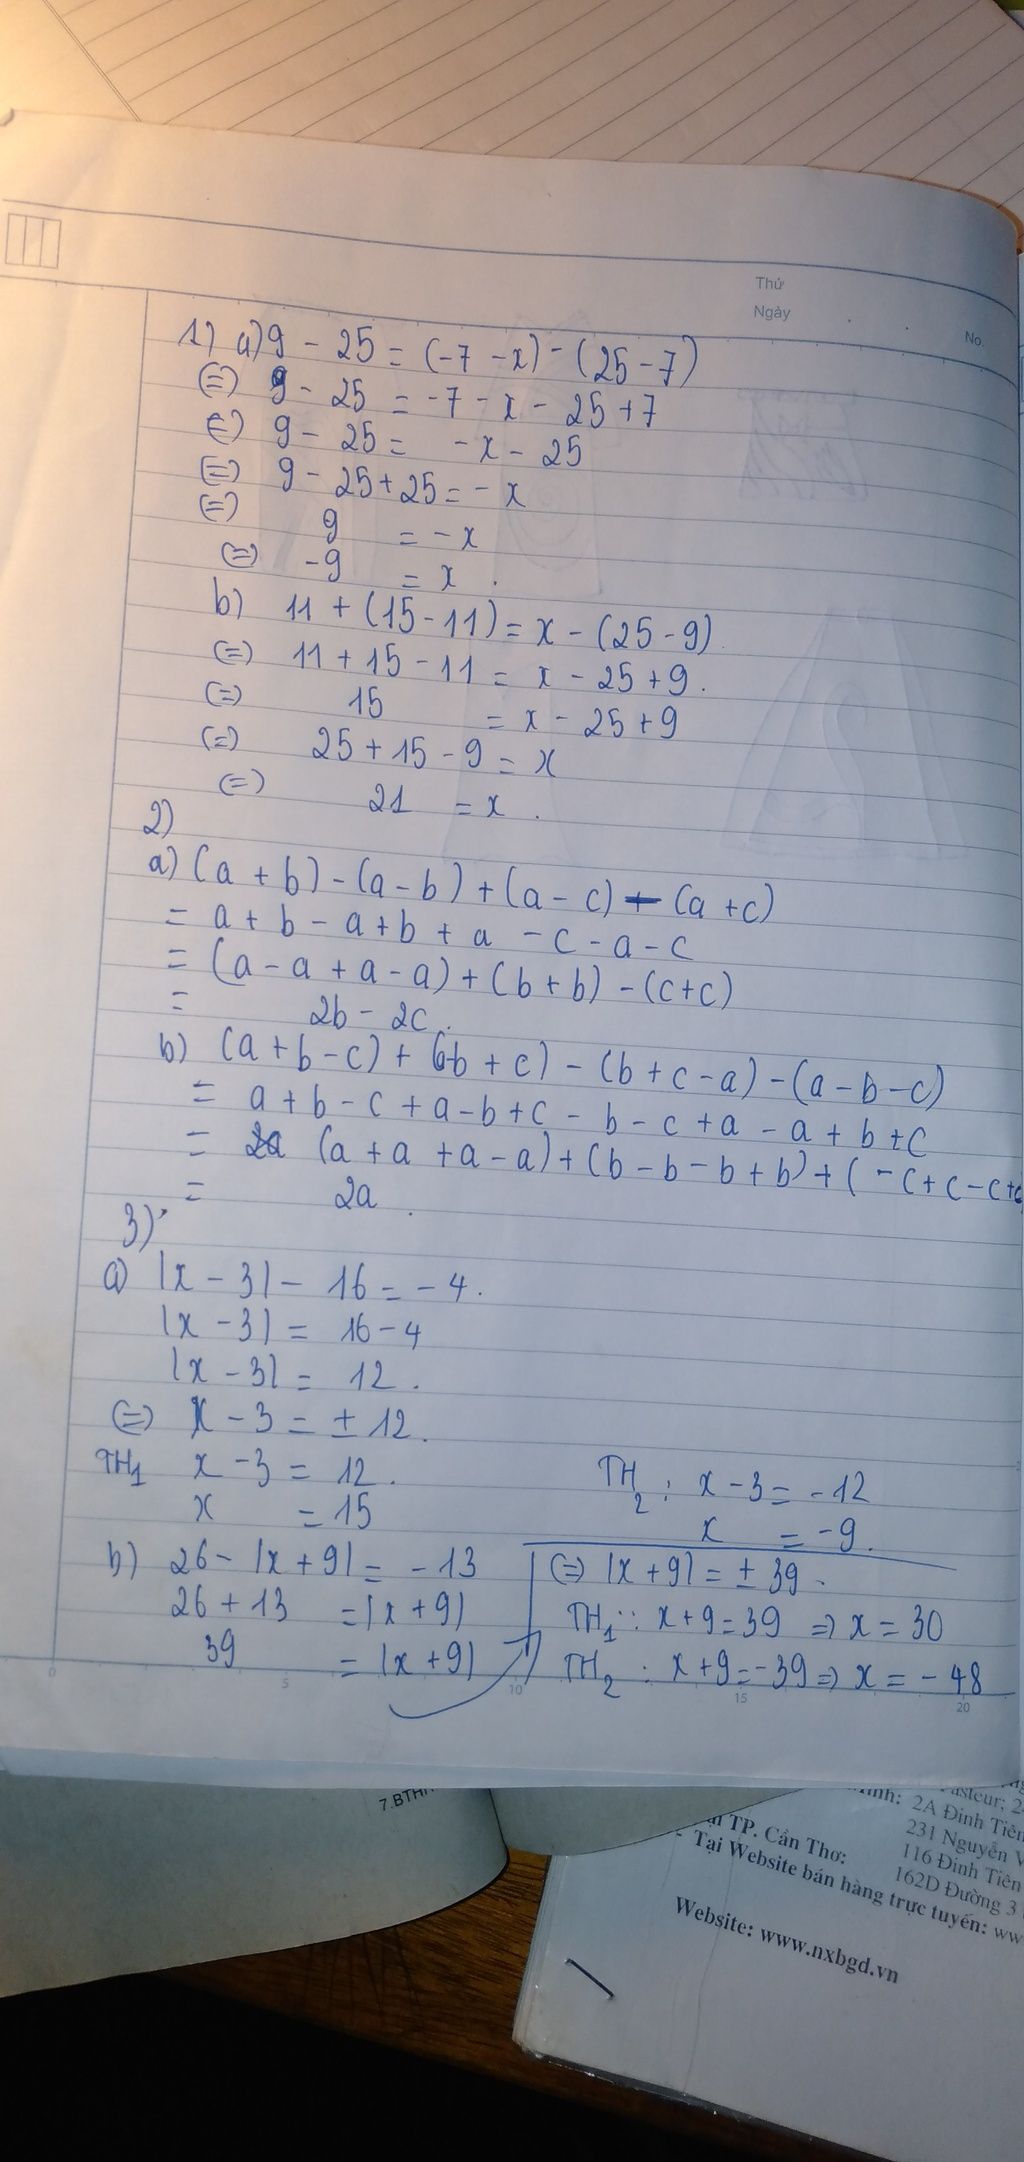 Thứ
Ngày
No.
1) a) 9 - 25 = (-7 - x) - (25 - 7)
(=) 9 - 25 = -7 - x - 25 + 7
(=) 9 - 25 = - x - 25
(=) 9 - 25 + 25 = - x
(=) 9 = - x
(=) -9 = x .
b) 11 + (15 - 11) = x - (25 - 9)
(=) 11 + 15 - 11 = x - 25 + 9 .
(=) 15 = x - 25 + 9
(=) 25 + 15 - 9 = x
(=) 21 = x .
2)
a) (a + b) - (a - b) + (a - c) - (a + c)
= a + b - a + b + a - c - a - c
= (a - a + a - a) + (b + b) - (c + c)
= 2b - 2c .
b) (a + b - c) + (b + c) - (b + c - a) - (a - b - c)
= a + b - c + a - b + c - b - c + a - a + b + c
= (a + a + a - a) + (b - b - b + b) + ( - c + c - c + c
= 2a .
3)
a) |x - 3| - 16 = - 4 .
|x - 3| = 16 - 4
|x - 3| = 12 .
(=) x - 3 = ± 12 .
TH1 x - 3 = 12 .
x = 15
TH2 : x - 3 = - 12
x = -9 .
b) 26 - |x + 9| = - 13
26 + 13 = |x + 9|
39 = |x + 9|
(=) |x + 9| = ± 39 .
TH1 : x + 9 = 39 => x = 30
TH2 : x + 9 = -39 => x = - 48
0 5 10 15 20
7.BTH
2A Đinh Tiên
TP. Cần Thơ: 231 Nguyễn V
116 Đinh Tiên
162D Đường 3
- Tại Website bán hàng trực tuyến: ww
Website: www.nxbgd.vn